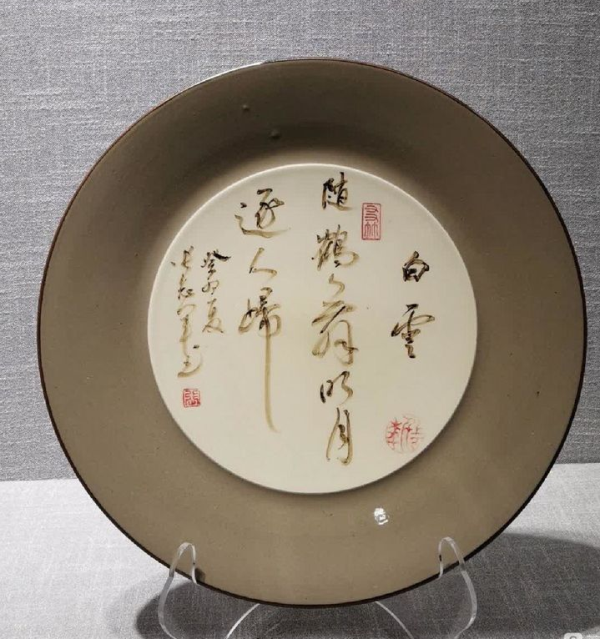 白雲
随鶴舞明月
逐人歸
癸卯夏